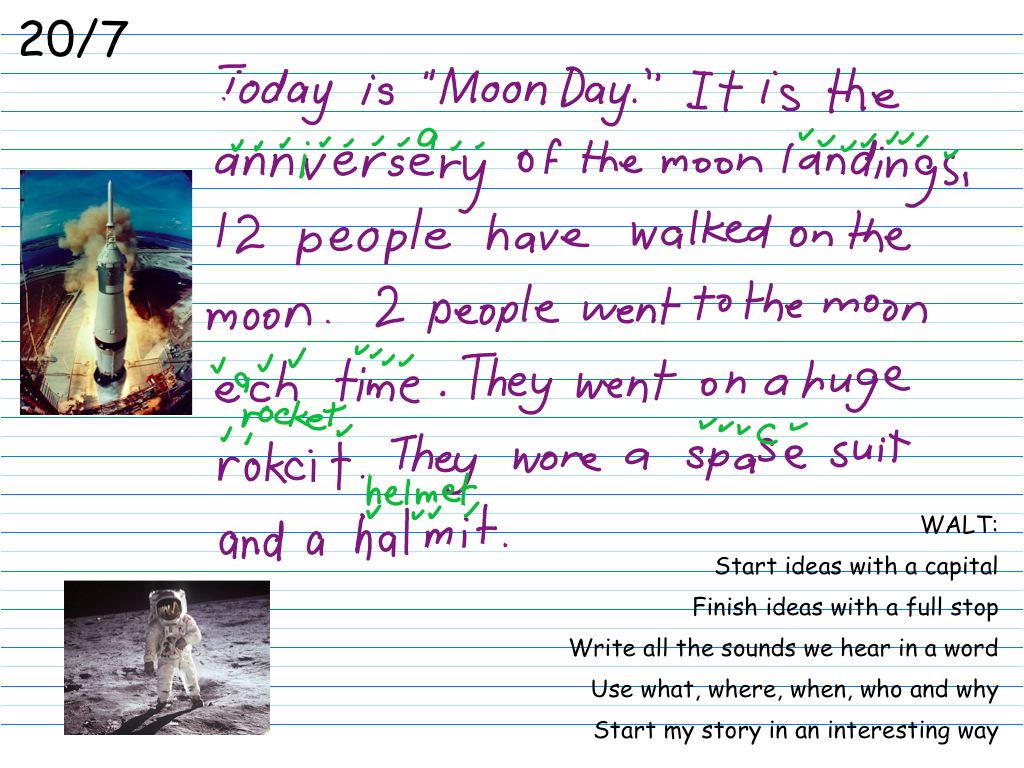 20/7
Today is "Moon Day." It is the
a
anniversery of the moon landings.
12 people have walked on the
moon. 2 people went to the moon
a
ech time. They went on a huge
rocket
rokcit. They wore a spase suit
c
helmet
and a halmit.
WALT:
Start ideas with a capital
Finish ideas with a full stop
Write all the sounds we hear in a word
Use what, where, when, who and why
Start my story in an interesting way